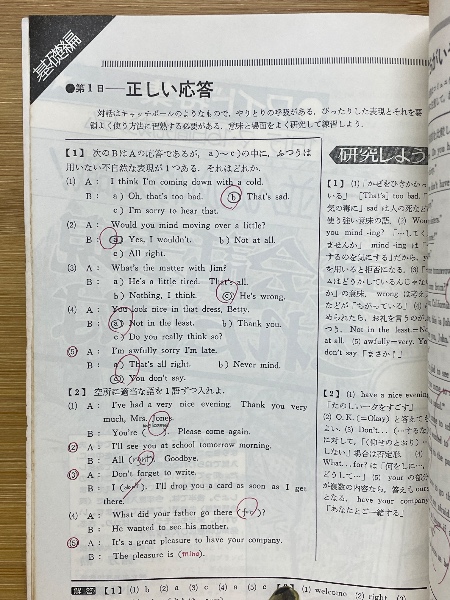 基礎編
●第1日――正しい応答
対話はキャッチボールのようなもので，やりとりの呼吸がある．ぴったりした表現とそれを要
領よく使う方法に習熟する必要がある．意味と場面をよく研究して練習しよう．
【1】 次のBはAの応答であるが，a)～c)の中に，ふつうは
用いない不自然な表現が1つある．それはどれか．
(1) A: I think I'm coming down with a cold.
B: a) Oh, that's too bad. b) That's sad.
c) I'm sorry to hear that.
(2) A: Would you mind moving over a little?
B: a) Yes, I wouldn't. b) Not at all.
c) All right.
(3) A: What's the matter with Jim?
B: a) He's a little tired. That's all.
b) Nothing, I think. c) He's wrong.
(4) A: You look nice in that dress, Betty.
B: a) Not in the least. b) Thank you.
c) Do you really think so?
(5) A: I'm awfully sorry I'm late.
B: a) That's all right. b) Never mind.
c) You don't say.
【2】 空所に適当な語を1語ずつ入れよ．
(1) A: I've had a very nice evening. Thank you very
much, Mrs. Jones.
B: You're ( ). Please come again.
(2) A: I'll see you at school tomorrow morning.
B: All (right). Goodbye.
(3) A: Don't forget to write.
B: I ( ). I'll drop you a card as soon as I get
there.
(4) A: What did your father go there (for)?
B: He wanted to see his mother.
(5) A: It's a great pleasure to have your company.
B: The pleasure is (mine).
研究しよう
【1】 (1)
いる」 [That's] too bad.
の毒に」 sad は人の死など
使う強い意味の語．(2) Wou
you mind -ing? 「…してく
ませんか」 mind -ing は「
するのを気にする」だから，y
を用いると拒否になる．(3)
Aはどうかしているんじゃな
か」の意味． wrong は
などが「ちがっている」 (4)
められたら，お礼を言うのが
つう． Not in the least=No
at all. (5) awfully=very. Yo
don't say 「まさか！」
【2】 (1) have a nice evening
「たのしい一夕をすごす」
(2) O.K.(=Okay) と答えても
よい．(3) Don't… (…するな)
に対して，「(仰せのとおり)
しない」場合は否定形 (4)
What…for? は「何をしに…，
どうして…」 (5) your の部分
が複数の内容なら，答えも ours
となる． have your company
「あなたとご一緒する」
解答 【1】 (1) b (2) a (3) c (4) a (5) c 【2】 (1) welcome (2) right (3)